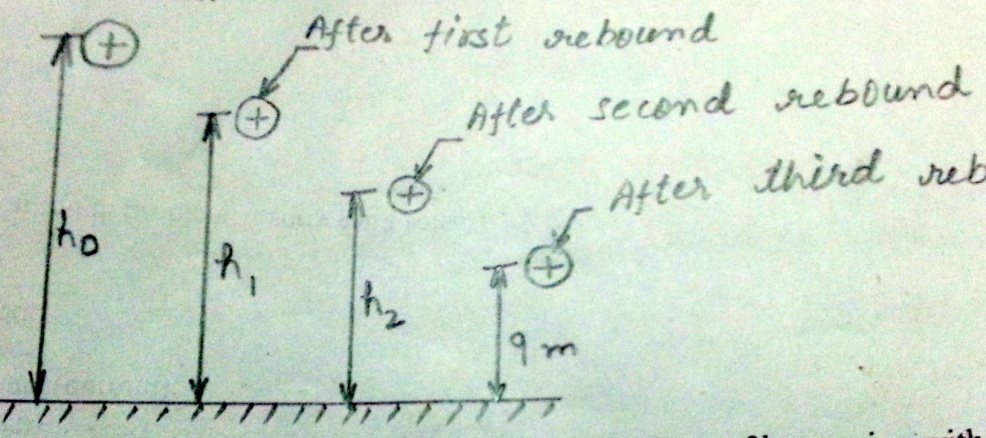 After first rebound
After second rebound
After third reb
h0
h1
h2
9 m
with